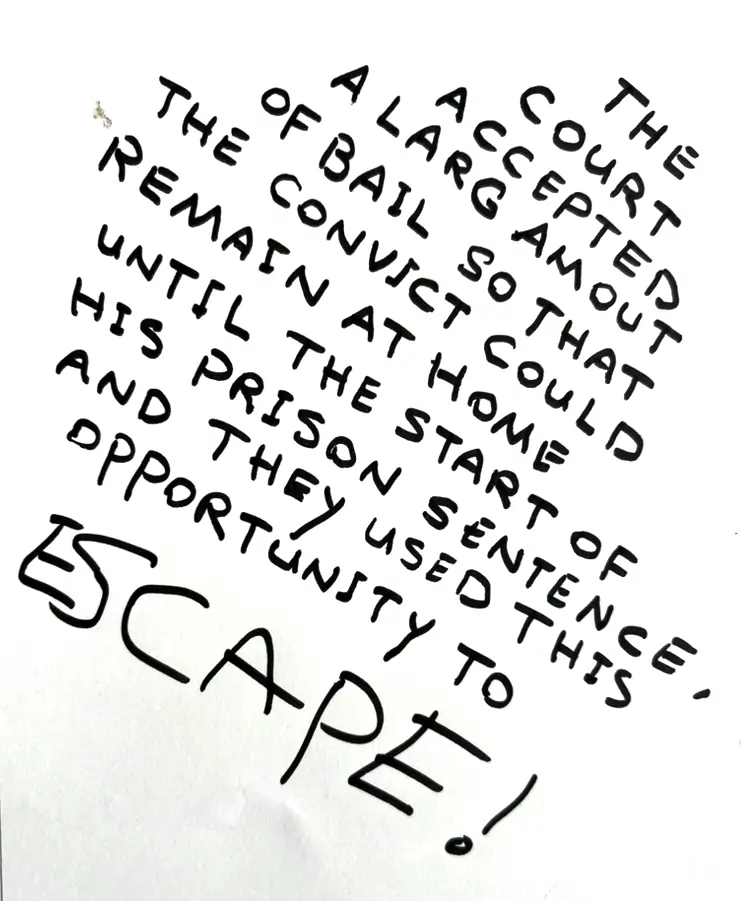 THE
COURT
ACCEPTED
A LARG AMOUT
OF BAIL SO THAT
THE CONVICT COULD
REMAIN AT HOME
UNTIL THE START OF
HIS PRISON SENTENCE,
AND THEY USED THIS
OPPORTUNITY TO
ESCAPE!